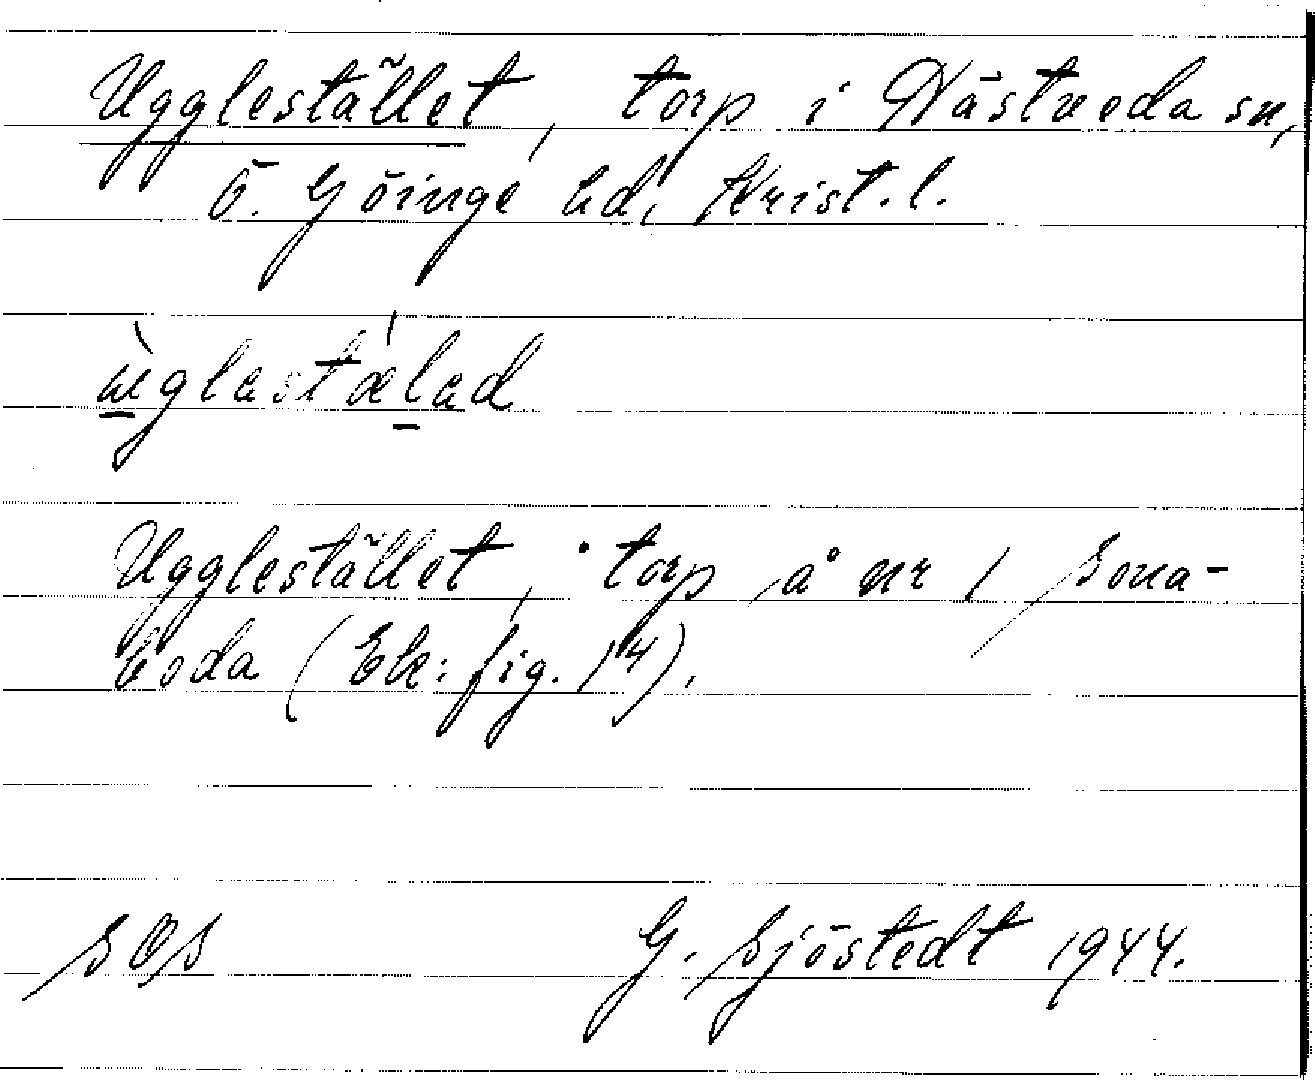 Ugglestället, torp i Nästveda sn,
Ö. Göinge hd, Krist. l.
ùglestǽlad
Ugglestället, torp å nr 1 Sona-
boda (Ek: fig. 14).
SOS G. Sjöstedt 1944.